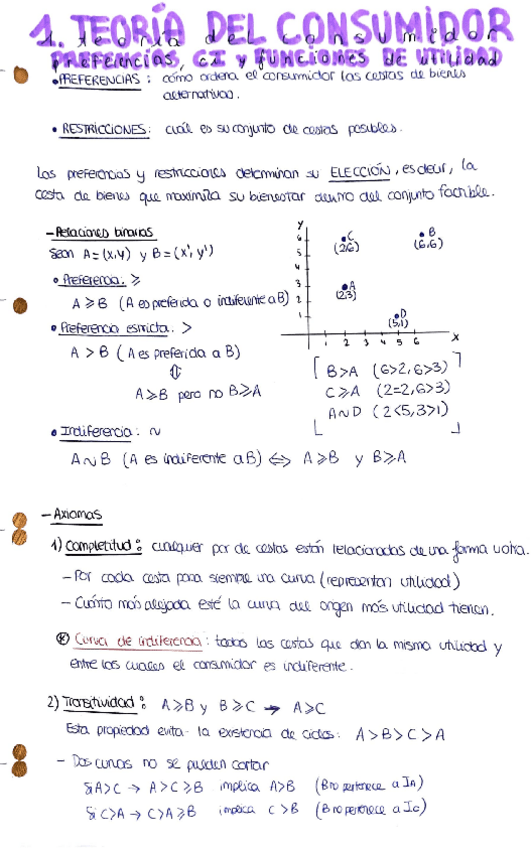 1. TEORÍA DEL CONSUMIDOR
PREFERENCIAS, CI y FUNCIONES DE UTILIDAD
• PREFERENCIAS: cómo ordena el consumidor las cestas de bienes
alternativas.
• RESTRICCIONES: cuál es su conjunto de cestas posibles.
Las preferencias y restricciones determinan su ELECCIÓN, es decir, la
cesta de bienes que maximiza su bienestar dentro del conjunto factible.
- Relaciones binarias
Sean A=(x,y) y B=(x',y')
• Preferencia: ⩾
A⩾B (A es preferida o indiferente a B)
• Preferencia estricta: >
A > B (A es preferida a B)
⇕
A⩾B pero no B⩾A
• Indiferencia: ~
A~B (A es indiferente a B) ⇔ A⩾B y B⩾A
y
6
5
4
3
2
1
1 2 3 4 5 6 x
C
(2,6)
B
(6,6)
A
(2,3)
D
(5,1)
B>A (6>2, 6>3)
C⩾A (2=2, 6>3)
A~D (2<5, 3>1)
- Axiomas
1) Completitud: cualquier par de cestas están relacionadas de una forma u otra.
- Por cada cesta pasa siempre una curva (representan utilidad)
- Cuánto más alejada esté la curva del origen más utilidad tienen.
Curva de indiferencia: todas las cestas que dan la misma utilidad y
entre las cuales el consumidor es indiferente.
2) Transitividad: A⩾B y B⩾C → A⩾C
Esta propiedad evita la existencia de ciclos: A>B>C>A
- Dos curvas no se pueden cortar
Si A>C → A>C⩾B implica A>B (B no pertenece a IA)
Si C>A → C>A⩾B implica C>B (B no pertenece a IC)